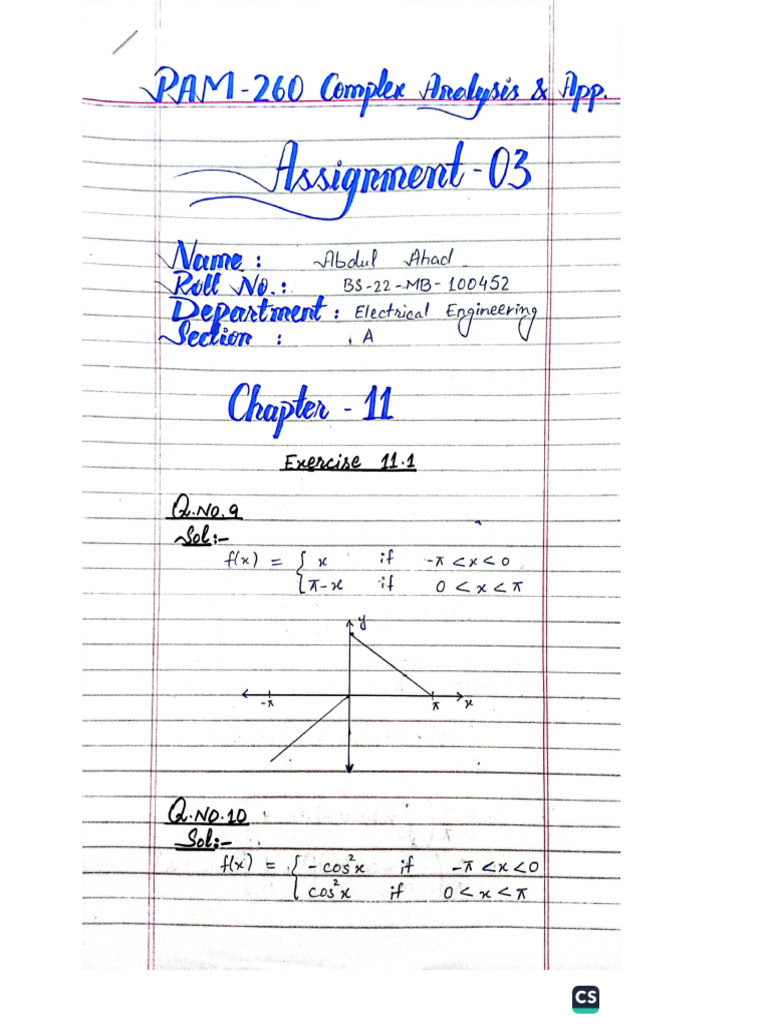 PAM-260 Complex Analysis & App.
Assignment-03
Name : Abdul Ahad
Roll No. : BS-22-MB-100452
Department : Electrical Engineering
Section : A
Chapter - 11
Exercise 11.1
Q.NO.9
Sol:-
f(x) = { x if -π<x<0
{ π-x if 0<x<π
y
-π π x
Q.NO.10
Sol:-
f(x) = { -cos²x if -π<x<0
{ cos²x if 0<x<π
CS